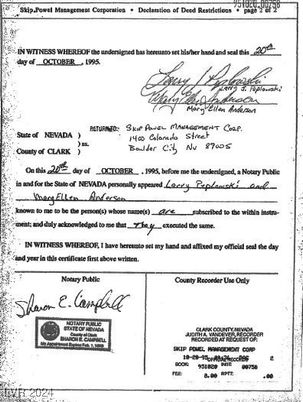 Skip.Powel Management Corporation • Declaration of Deed Restrictions • page 2 of 2
IN WITNESS WHEREOF the undersigned has hereunto set his/her hand and seal this 20th
day of OCTOBER, 1995.
Larry J. Poplowski
Mary Ellen Anderson
RETURNED: SKIP POWEL MANAGEMENT CORP.
140 Colorado Street
Boulder City NV 89005
State of NEVADA )
) ss.
County of CLARK )
On this 20th day of OCTOBER, 1995, before me the undersigned, a Notary Public
in and for the State of NEVADA personally appeared Larry Poplowski and
Mary Ellen Anderson
known to me to be the person(s) whose name(s) are subscribed to the within instru-
ment; and duly acknowledged to me that They executed the same.
IN WITNESS WHEREOF, I have hereunto set my hand and affixed my official seal the day
and year in this certificate first above written.
Notary Public
Sharon E. Campbell
NOTARY PUBLIC
STATE OF NEVADA
County of Clark
SHARON E. CAMPBELL
My Appointment Expires Feb. 1, 1998
County Recorder Use Only
CLARK COUNTY, NEVADA
JUDITH A. VANDEVER, RECORDER
RECORDED AT REQUEST OF:
SKIP POWEL MANAGEMENT CORP
10-20-95 2
OFFICIAL RECORDS
BOOK: 951020 INST: 00758
FEE: 8.00 RPTT: .00
LVR 2024